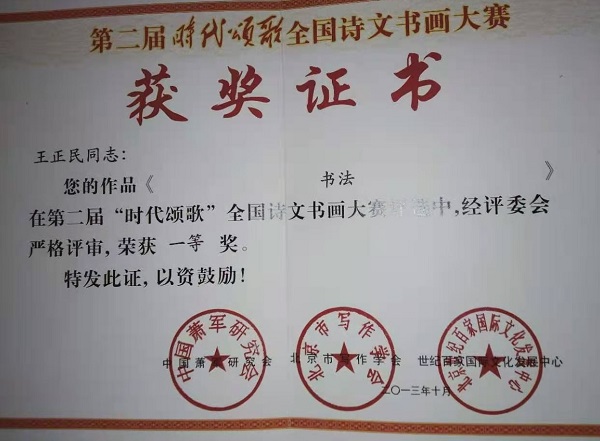 第二届时代颂歌全国诗文书画大赛
获奖证书
王正民同志：
您的作品《 书法 》
在第二届“时代颂歌”全国诗文书画大赛评选中，经评委会
严格评审，荣获 一等 奖。
特发此证，以资鼓励！
中国萧军研究会 北京市写作学会 世纪百家国际文化发展中心
中国萧军研究会
北京市写作学会
北京世纪百家国际文化发展中心
二〇一三年十月